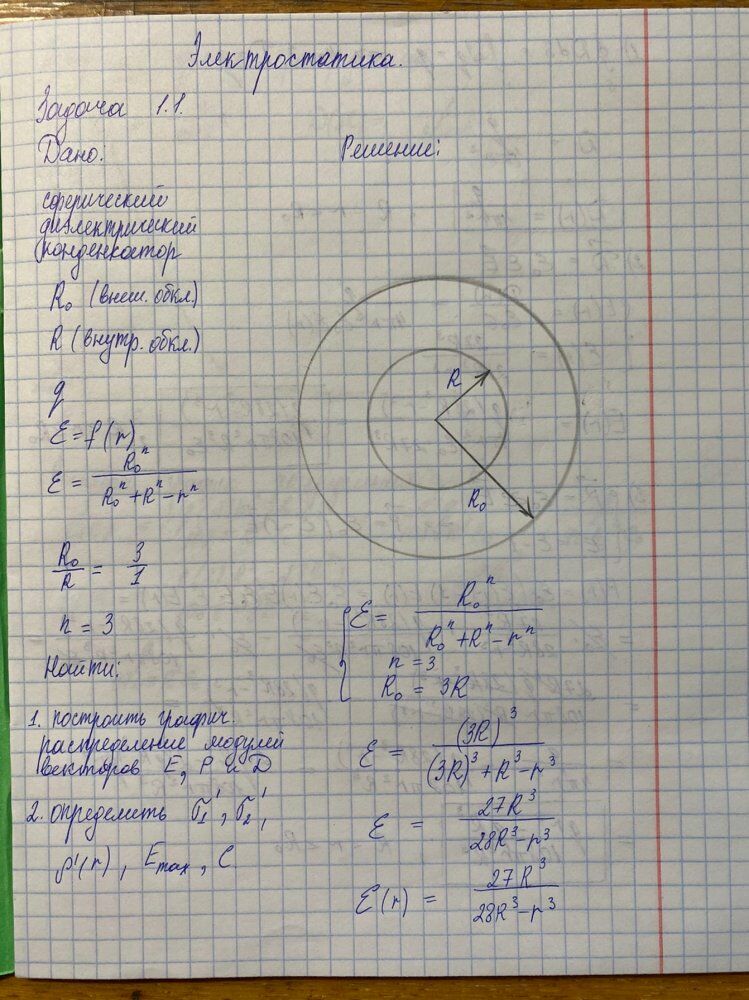 Электростатика.
Задача 1.1.
Дано:
Решение:
сферический
диэлектрический
конденсатор
R₀ (внеш. обкл.)
R (внутр. обкл.)
q
ε = f(r)
ε = R₀ⁿ / (R₀ⁿ + Rⁿ - rⁿ)
R₀/R = 3/1
n = 3
Найти:
1. построить графич.
распределение модулей
векторов E, P и D
2. определить σ₁', σ₂',
ρ'(r), Emax, C.
R
R₀
ε = R₀ⁿ / (R₀ⁿ + Rⁿ - rⁿ)
n = 3
R₀ = 3R
ε = (3R)³ / ((3R)³ + R³ - r³)
ε = 27R³ / (28R³ - r³)
ε(r) = 27R³ / (28R³ - r³)